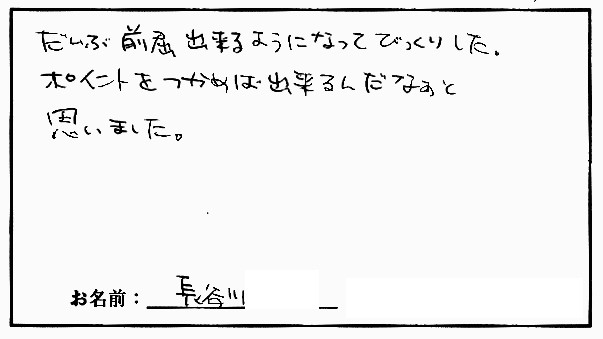 だいぶ前屈出来るようになってびっくりした。
ポイントをつかめば出来るんだなぁと
思いました。
お名前：長谷川